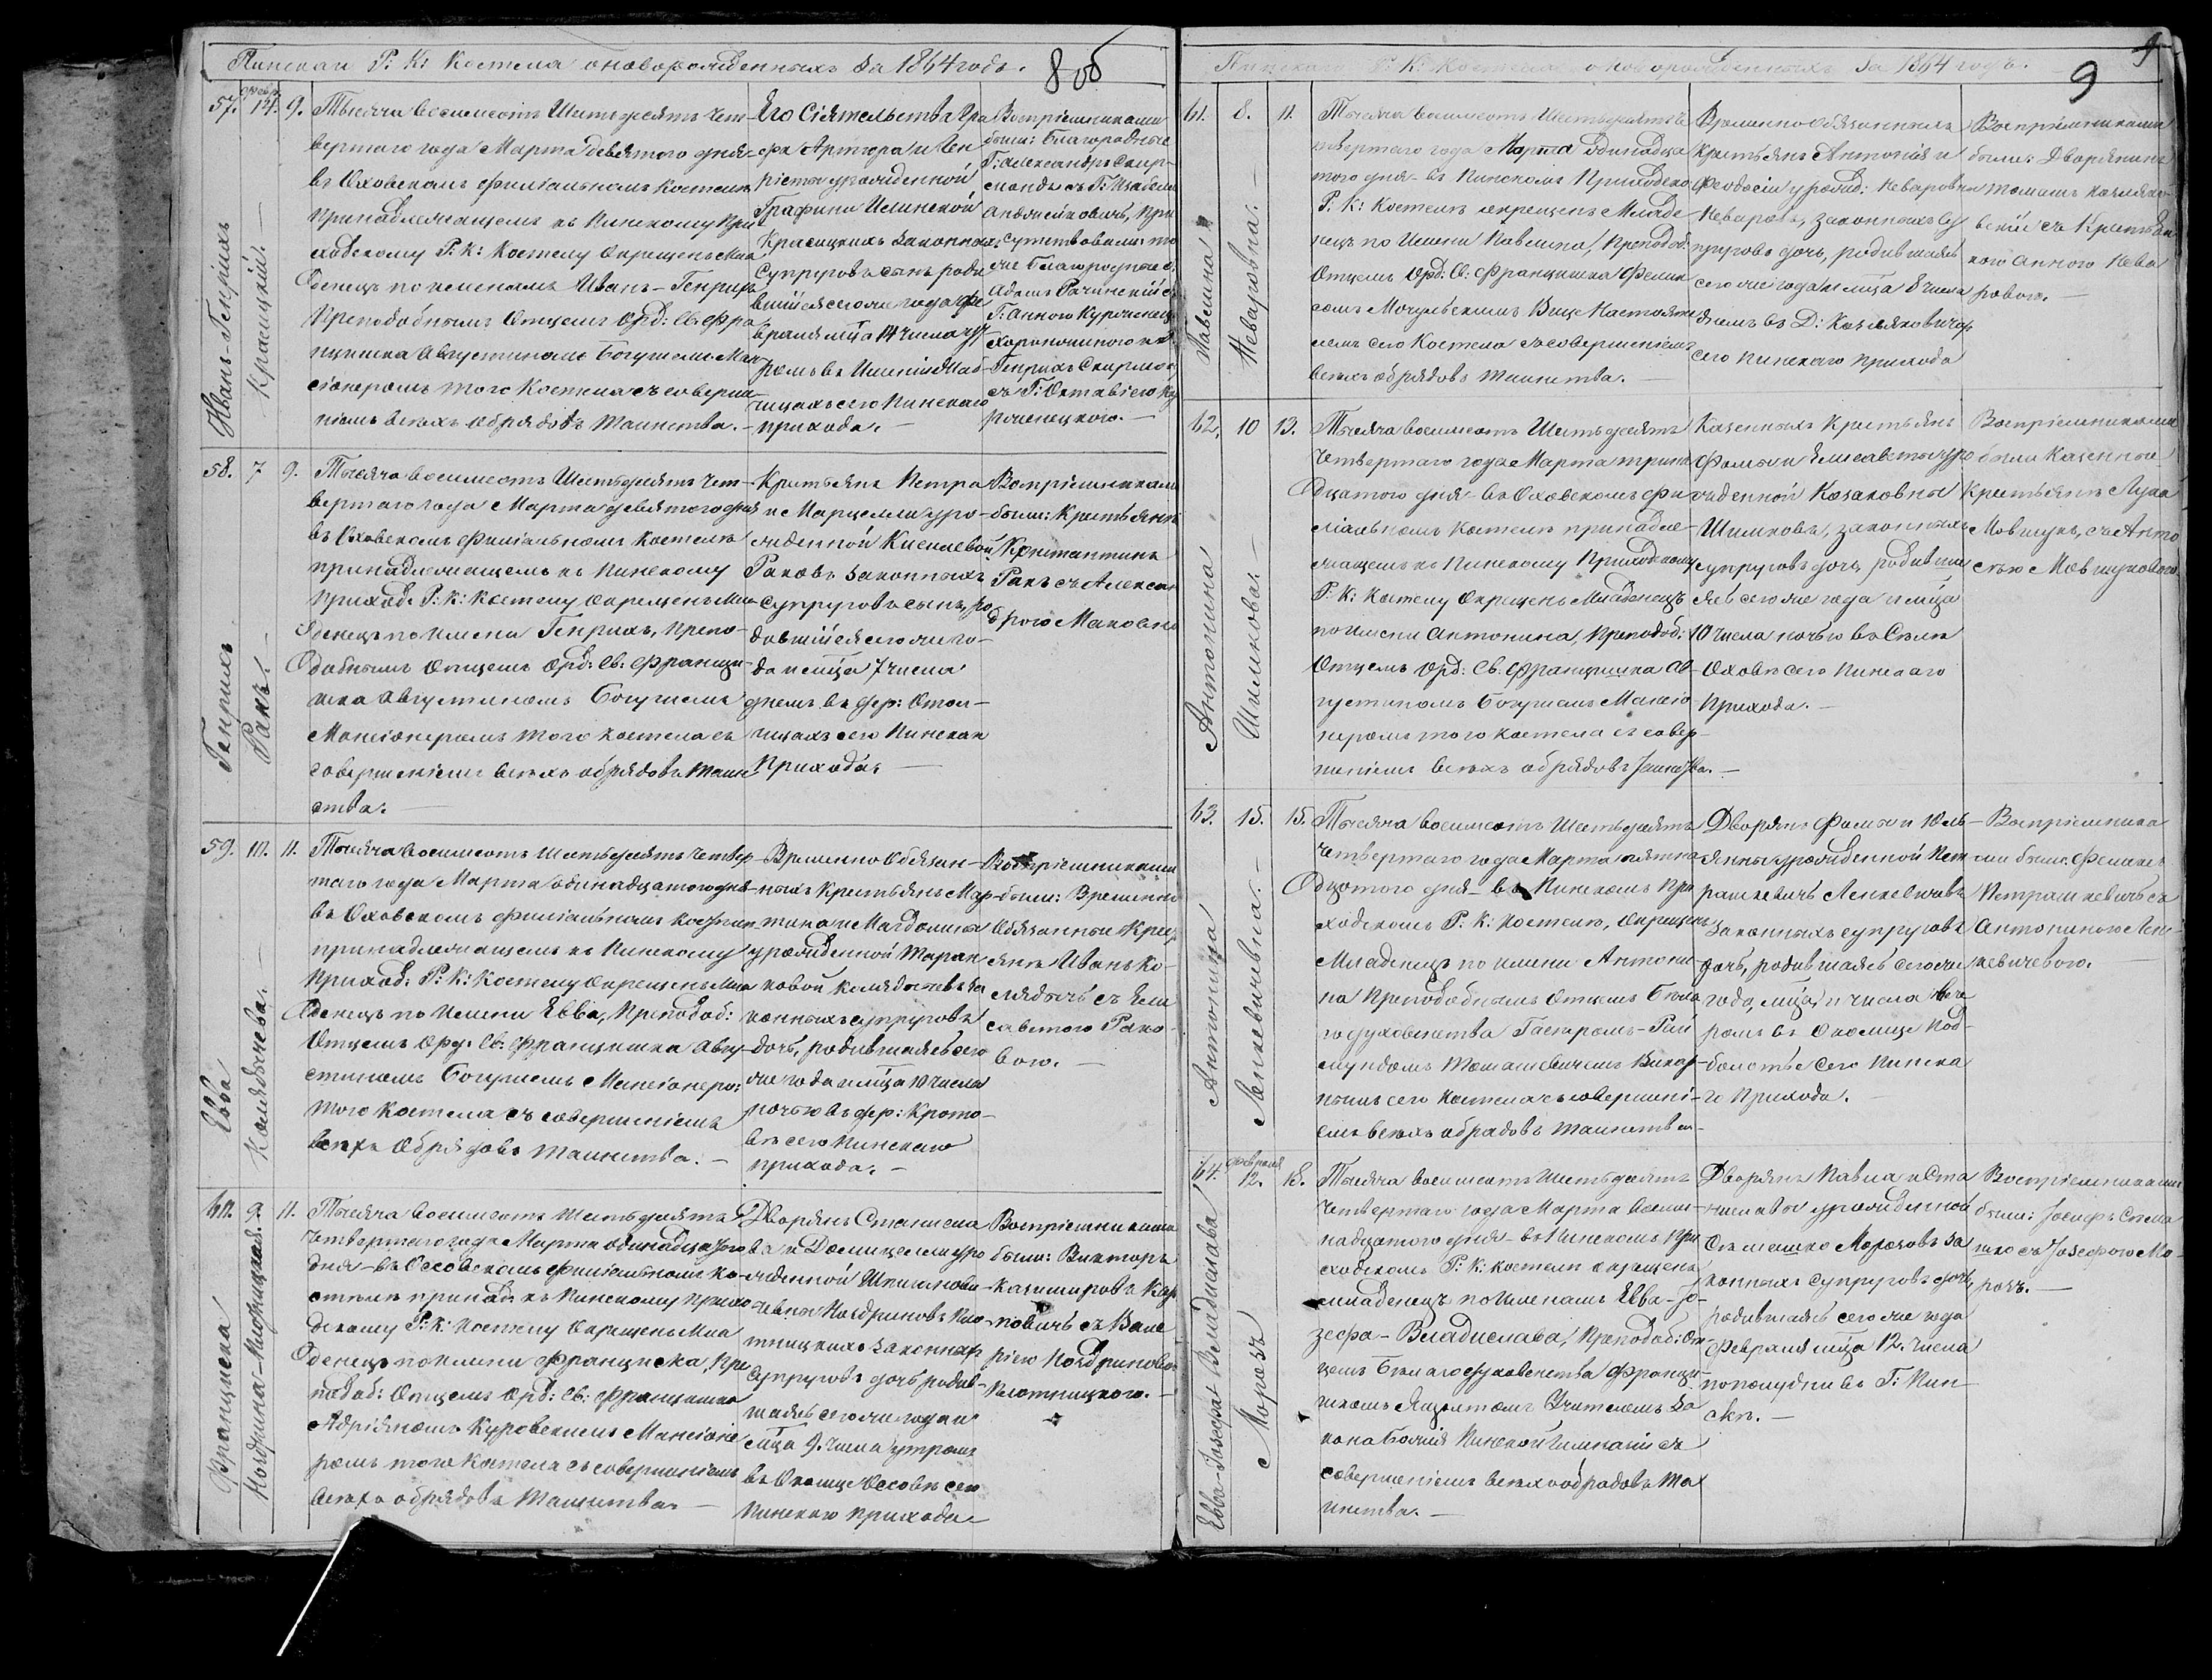 Пинскаго Р: К: Костела оноворожденныхъ за 1864 годъ.
8 об
57. 14. 9.
Иванъ-Генрихъ
Красицкій.
Тысяча восемсотъ Шестьдесятъ чет-
вертаго года Марта девятого дня
въ Оховскомъ филіальномъ Костелѣ
принадлежащемъ къ Пинскому При-
ходскому Р: К: Костелу Окрещенъ Мла
денецъ по именамъ Иванъ-Генрихъ
Преподобнымъ Отцемъ Орд: Св: Фра
нцишка Августиномъ Богушемъ Ман
сіонеромъ того Костела съ соверше
ніемъ всѣхъ обрядовъ Таинства. —
Его Сіятельства Гра
фа Артура и Ген
ріеты урожденной
Графини Ильинской
Красицкихъ законныхъ
Супруговъ сынъ роди
вшійся сего же года Фе
враля мѣца 14 числа
въ Имѣніи
сего Пинскаго
прихода. —
Воспріемниками
были: Благородные
Г: Александръ Скир-
мондъ съ Г:
при
сутствовали: то
же Благородные:
Адамъ
Г: Анною
Генрихъ Скирмон
съ Г: Октавіею
58. 7 9.
Генрихъ
Ракъ.
Тысяча восемсотъ Шестьдесятъ чет-
вертаго года Марта девятого дня
въ Оховскомъ филіальномъ Костелѣ
принадлежащемъ къ Пинскому
приход. Р: К: Костелу Окрещенъ Мла
денецъ по имени Генрихъ, Препо-
добнымъ Отцемъ Орд: Св: Францы-
шка Августиномъ Богушемъ
Мансіонеромъ того Костела съ
совершеніемъ всѣхъ обрядовъ Таин
ства. —
Крестьянъ Петра
и Марцелли уро-
жденной Киселевой
Раковъ законныхъ
супруговъ сынъ, ро
дившійся сего же го-
да и мѣца 7 числа
днемъ въ дер:
сего Пинскаго
прихода. —
Воспріемниками
были: Крестьяне
Константинъ
Ракъ съ Алексан
дрою
59. 10. 11.
Евва
Колядычева.
Тысяча восемсотъ Шестьдесятъ четвер
того года Марта одинадцатого дня
въ Оховскомъ филіальномъ Костелѣ
принадлежащемъ къ Пинскому
Приход. Р: К: Костелу Окрещенъ Мла
денецъ по Имени Евва, Преподоб:
Отцемъ Орд. Св: Францишка Авгу-
стиномъ Богушемъ Мансіонеро:
того Костела съ совершеніемъ
всѣхъ Обрядовъ Таинства. —
Временно Обязан-
ныхъ Крестьянъ Мар-
тина и Магдалины
урожденной Таран
ковой Колядычевъ за
конныхъ супруговъ
дочь, родившаяся сего
же года и мѣца 10 числа
ночью въ дер: Крото-
вѣ сего Пинскаго
прихода. —
Воспріемниками
были: Временно
Обязанные Крес
яне Иванъ Ко-
лядычъ съ Ели
саветою Рако-
вою. —
60. 9. 11.
Франциска
Ноздрина-Плотницкая.
Тысяча восемсотъ Шестьдесятъ
четвертаго года Марта одинадцатого
дня — въ Оссовскомъ филіальномъ Ко-
стелѣ принад. къ Пинскому прихо
дскому Р: К: Костелу Окрещенъ Мла
денецъ по имени Франциска, Пре
подоб: Отцемъ Орд: Св: Францишка
Адріяномъ Куровскимъ Мансіоне
ромъ того Костела съ совершеніемъ
всѣхъ обрядовъ Таинства. —
Дворянъ Станисла
ва и Домицелли уро
жденной
Ноздриновъ Пло
тницкихъ законныхъ
супруговъ дочь родив-
шаяся сего же года и
мѣца 9. числа утромъ
въ Околицѣ Оссовѣ сего
Пинскаго прихода —
Воспріемниками
были: Викторъ
Казимировъ Кар
повичъ съ Вале
ріею Ноздриново
Плотницкою. —
Пинска Р: К: Костела оноворожденныхъ за 1864 годъ.
9
61. 8. 11.
Павлина
Неваровна.
Тысяча восемсотъ Шестьдесятъ Че
твертаго года Марта Одинадца
того дня — въ Пинскомъ Приходско
Р: К: Костелѣ окрещенъ Младе
нецъ по Имени Павлина, Преподоб:
Отцемъ Орд: Св: Францишка Фелик
сомъ Мочульскимъ Вице Настояте
лемъ сего Костела съ совершеніемъ
всѣхъ обрядовъ Таинства. —
Временно Обязанныхъ
Крестьянъ Антонія и
Феодосіи урожд: Неваровны
Неваровъ, законныхъ Су
пруговъ дочь, родившаяся
сего же года и мѣца 8 числа
днемъ въ Д:
сего Пинскаго прихода
Воспріемниками
были: Дворянинъ
Томашъ
вскій съ Крестьян
кою Анною Нева
ровою. —
62. 10 13.
Антонина
Шимкова —
Тысяча восемсотъ Шестьдесятъ
четвертаго года Марта трина
дцатого дня — въ Оховскомъ фи
ліальномъ Костелѣ принадле-
жащемъ къ Пинскому Приходскому
Р: К: Костелу Окрещенъ Младенецъ
по имени Антонина, Преподоб:
Отцемъ Орд: Св: Францишка Ав
густиномъ Богушемъ Мансіо-
неромъ того Костела съ совер-
шеніемъ всѣхъ обрядовъ Таинства. —
Казенныхъ Крестьянъ
Фомы и Елисаветы уро
жденной Казаковны
Шимковъ, законныхъ
супруговъ дочь, родивша
яся сего же года и мѣца
10 числа ночью въ Селѣ
Оховѣ сего Пинскаго
Прихода. —
Воспріемниками
были Казенные
Крестьяне Лука
Мовшукъ, съ Анто
сею Мовшуковою
63. 15. 15.
Антонина
Ленкевичевна. —
Тысяча восемсотъ Шестьдесятъ
четвертаго года Марта пятна
дцатого дня — въ Пинскомъ При
ходскомъ Р: К: Костелѣ, окрещенъ
Младенецъ по имени Антони
на Преподобнымъ Отцемъ Бѣла
го духовенства Гаспромъ-Рай
мундомъ Томашевичемъ Викар-
нымъ сего Костела съ совершені-
емъ всѣхъ обрядовъ Таинства —
Дворянъ Фомы и Юль-
янны урожденной Пет
рашкевичъ Ленкевичовъ
Законныхъ супруговъ
дочь, родившаяся сего же
года, мѣца и числа вече
ромъ въ Околицѣ Под-
болотье Сего Пинска
го Прихода. —
Воспріемника
ми были: Феликсъ
Петрашкевичъ съ
Антониною Лен-
кевичевою. —
64. Февраля 12. 18.
Евва-Іозефа-Владислава
Морозъ
Тысяча восемсотъ Шестьдесятъ
четвертаго года Марта Восем-
надцатого дня — въ Пинскомъ При
ходскомъ Р: К: Костелѣ окрещенъ
младенецъ по Именамъ Евва-Іо-
зефа-Владислава, Преподоб: От
цемъ Бѣлаго духовенства Франци-
шкомъ Учителемъ За
кона Божія Пинской Гимназіи съ
совершеніемъ всѣхъ обрядовъ Та
инства. —
Дворянъ Павла и Ста
ниславы урожденной
Семашко Морозовъ за
конныхъ супруговъ дочь,
родившаяся сего же года
Февраля мѣца 12. числа
пополудни въ Г: Пин-
скѣ. —
Воспріемниками
были: Іосифъ Сема
шко съ Іозефою Мо-
розъ. —